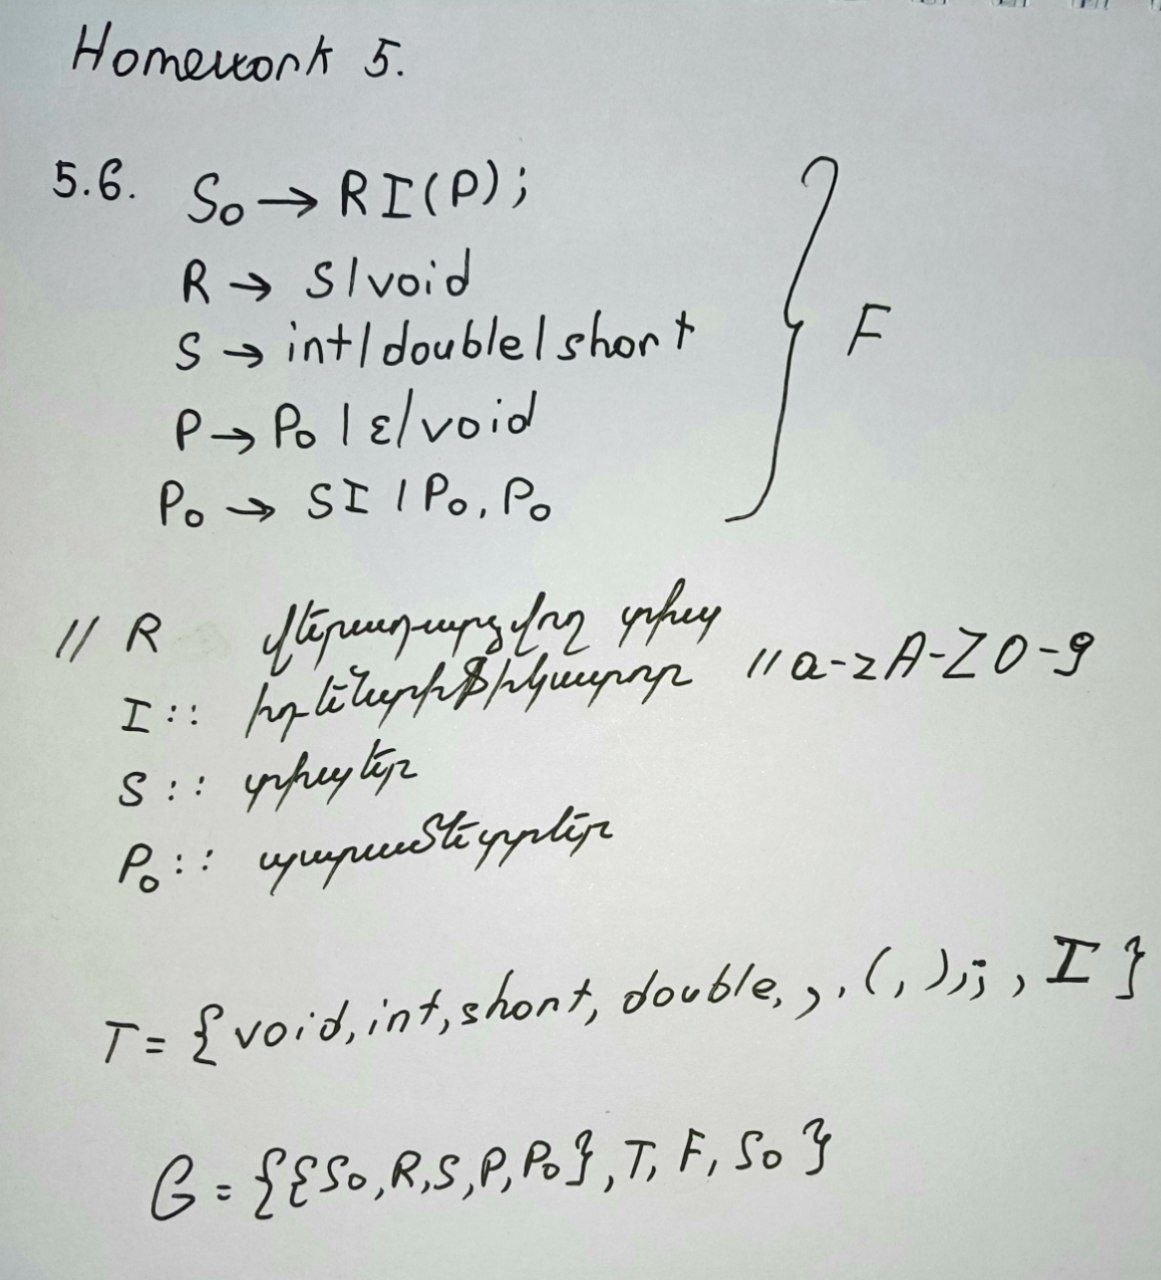 Homework 5.
5.6. S₀ → R I (P);
R → S | void
S → int | double | short
F
P → P₀ | ε | void
P₀ → S I | P₀, P₀
// R վերադարձվող տիպ
I :: իդենտիֆիկատոր // a-z A-Z 0-9
S :: տիպեր
P₀ :: պարամետրեր
T = { void, int, short, double, , , (, ), ;, I }
G = {{S₀, R, S, P, P₀}, T, F, S₀ }